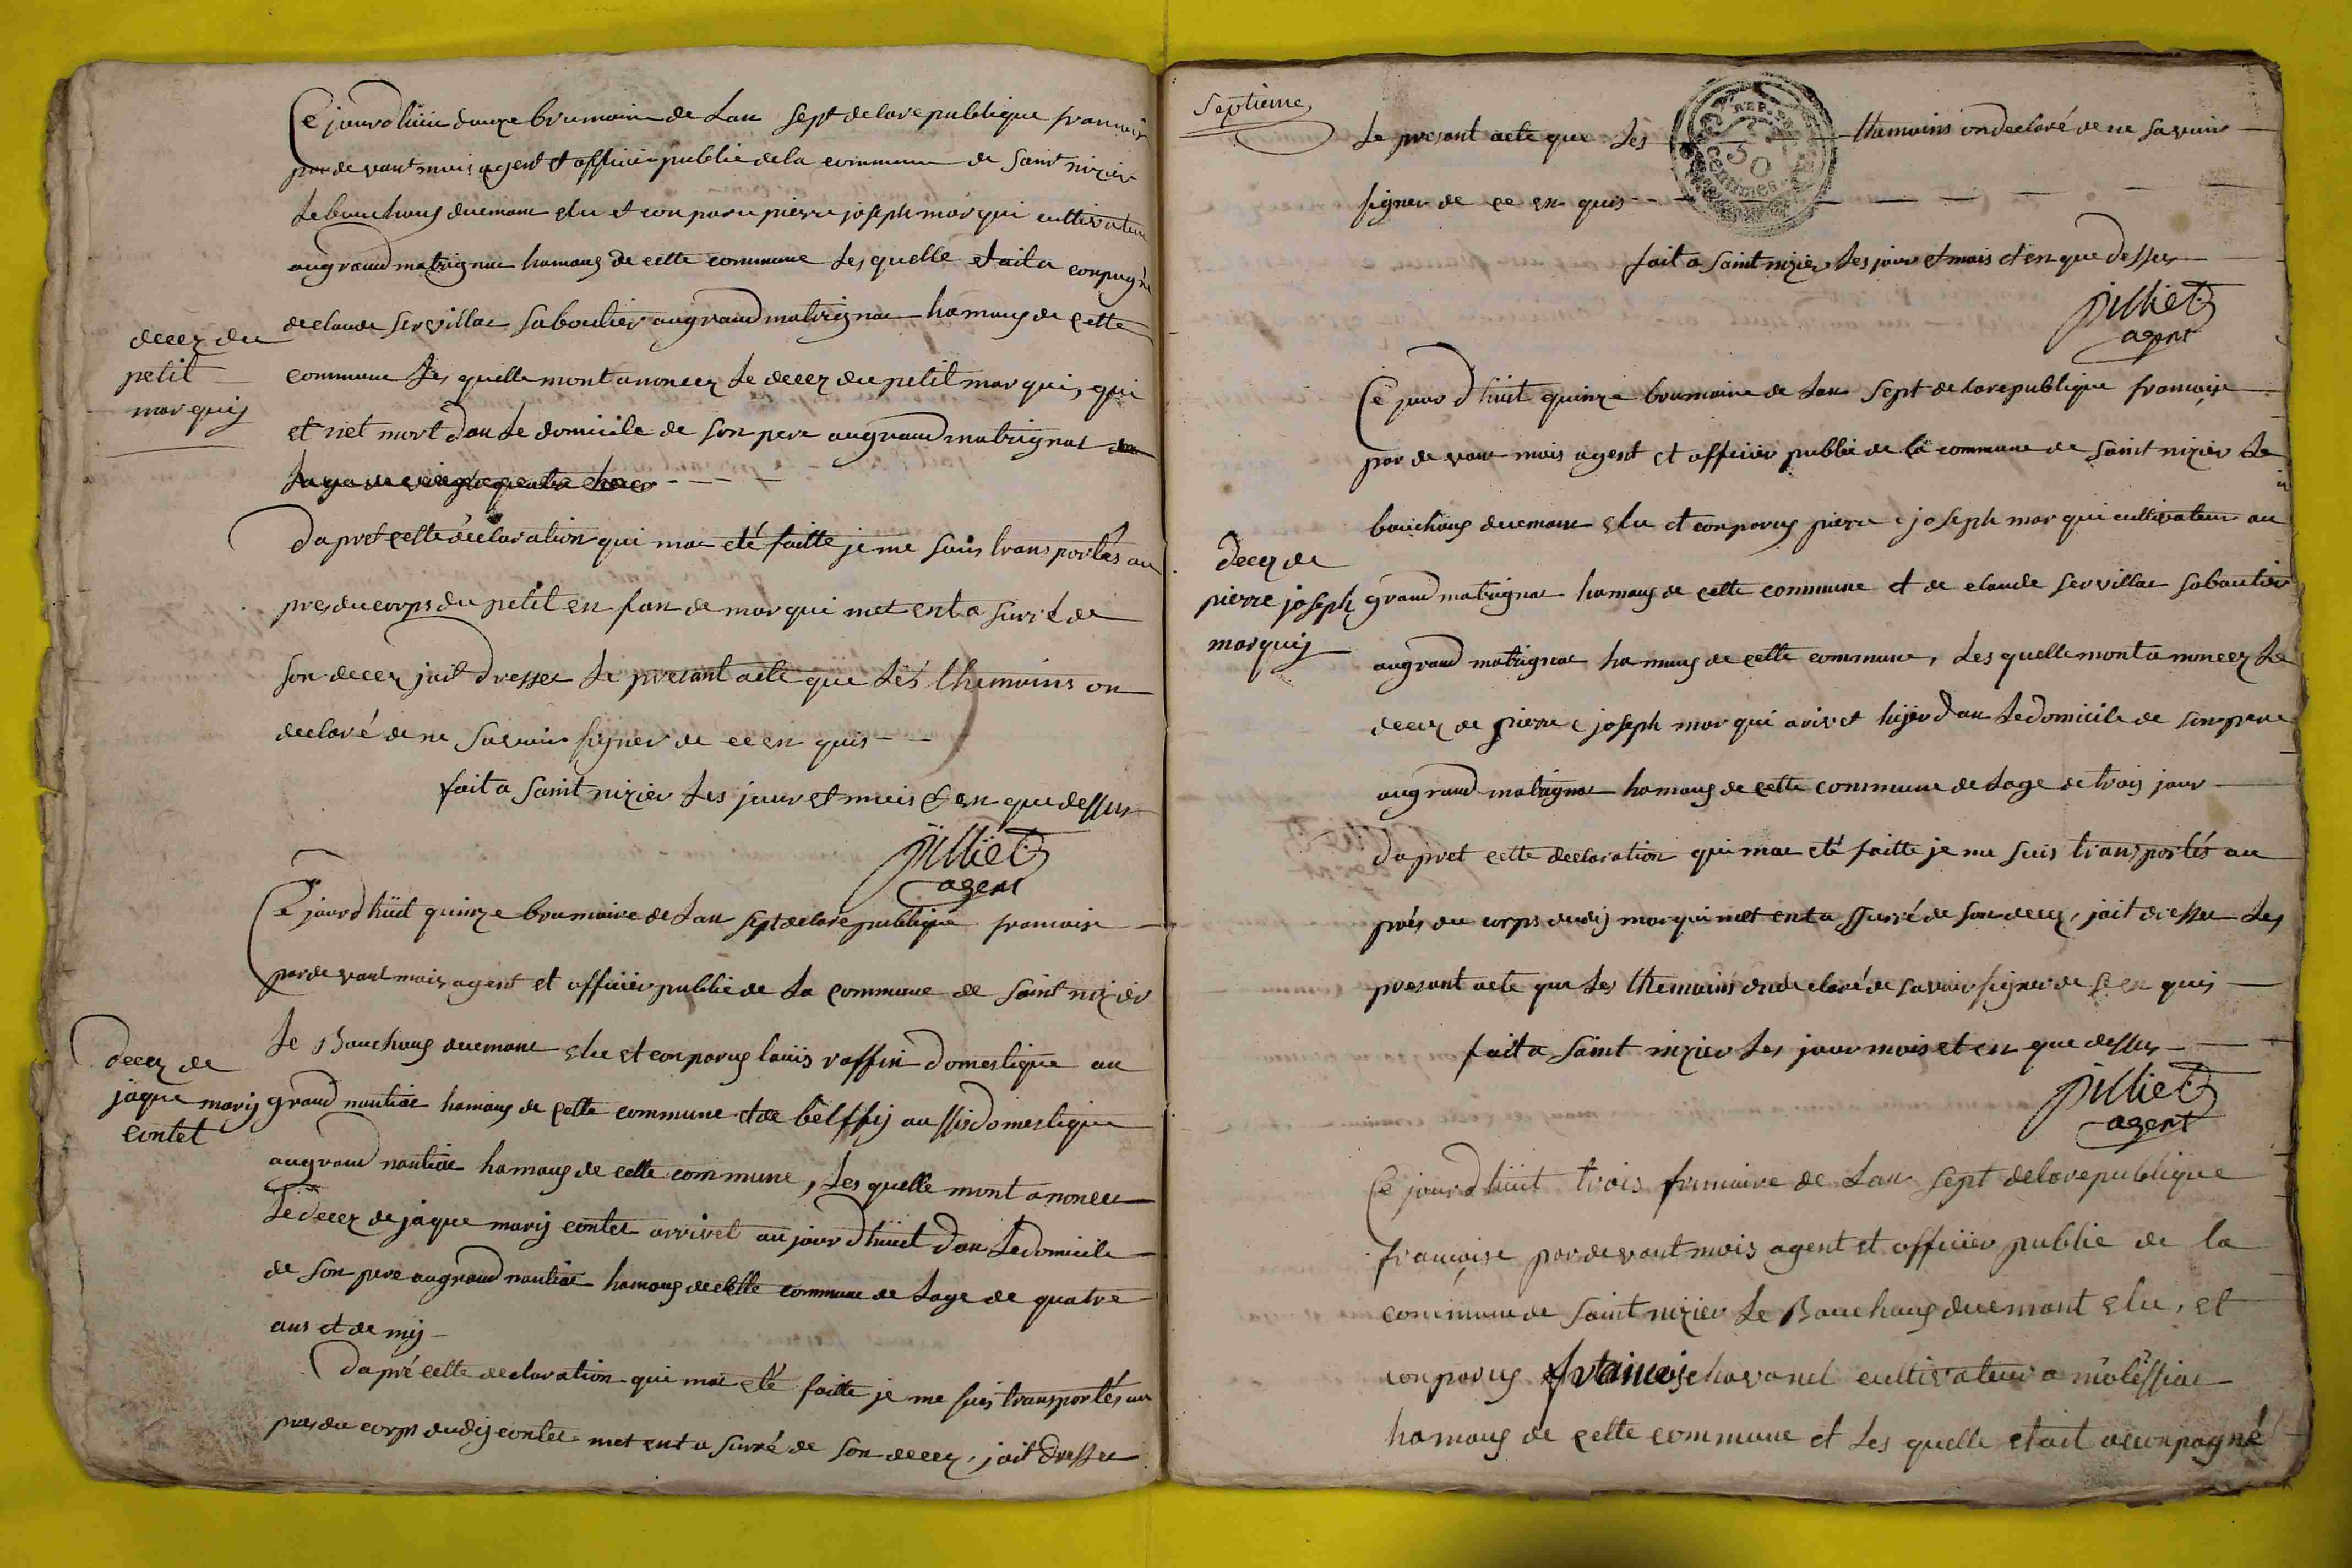 Ce jourdhüi douze brumaire de Lan Sept de la republique francaise
par de vant mois agent et officier publie de la commune de Saint nizier
Le bouchous ducmant elu et conparu pierre joseph mar qui cultivateur
au grand matrignac hamaus de cette commune Les quelle etait a conpagné
de claude Servillat Saboutier au grand matrignac hamaus de cette
decez du
petit
marquis
commune Les quelle mont anoncez Le decez du petit mar qui, qui
et net mort dan Le domicile de Son pere au grand matrignat
Lage de vingt quatre heur
Da pret cette déclaration qui mae eté faitte je me Suis trans portés au
pres du corps du petit en fan de mar qui met ent a Surré de
Son decez jait dresser Le presant acte que Les themoins on
declaré de ne Savoir Signer de ce en quis
fait a Saint nizier Les jour et mois et en que dessus
jülliet
agent
Ce jourdhüit quinze brumaire de Lan Sept de la republique francaise
par de vant mois agent et officier publie de La commune de Saint nizier
Le Bouchous ducmant elu et conparus loüis raffin domestique au
decez de
jaque marij
contet
grand nautiae hamaus de cette commune et de belffij au ssis domestique
au grand nautiae hamaus de cette commune, Les quelle mont anoncer
Le decez de jaque marij contet arrivet au jourdhüit dan Le domicile
de Son pere au grand nautiae hamaus de cette commune de Lage de quatre
ans et de mij
Da pré cette declaration qui mae eté faitte je me suis transportés au
pres du corps dudij contet met ent a Surré de Son decez, jait dresser
Septieme
Le presant acte que Les themoins on declaré de ne Savoir
REP. FRA.
50
centimes
Signer de ce en quis
fait a Saint nizier Les jour et mois et en que dessus
jülliet
agent
Ce jourdhüit quinze brumaire de Lan Sept de la republique francaise
par de vant mois agent et officier publie de la commune de Saint nizier Le
bouchous ducmant elu et conparus pierre joseph mar qui cultivateur au
decez de
pierre joseph
marquis
grand matrignac hamaus de cette commune et de claude Servillat Saboutier
au grand matrignac hamaus de cette commune, Les quelle mont a noncez Le
decez de pierre joseph mar qui arivet hijer dan Le domicile de Son pere
au grand matrignac hamaus de cette commune de Lage de trois jour
Da pret cette declaration qui mae eté faitte je me suis transportés au
prés du corps dudij mar qui met ent a ssurré de Son decez, jait dresser Les
presant acte que Les themoins on declaré de savoir signer de se en quis
fait a Saint nizier Les jour mois et en que dessus
jülliet
agent
Ce jourdhüit trois frimaire de Lan Sept de la republique
francaise par de vant mois agent et officier publie de la
commune de Saint nizier Le Bouchous ducmant elu, et
conparus francois chavanel cultivateur a molissiae
hamaus de cette commune et Les quelle etait acconpagné